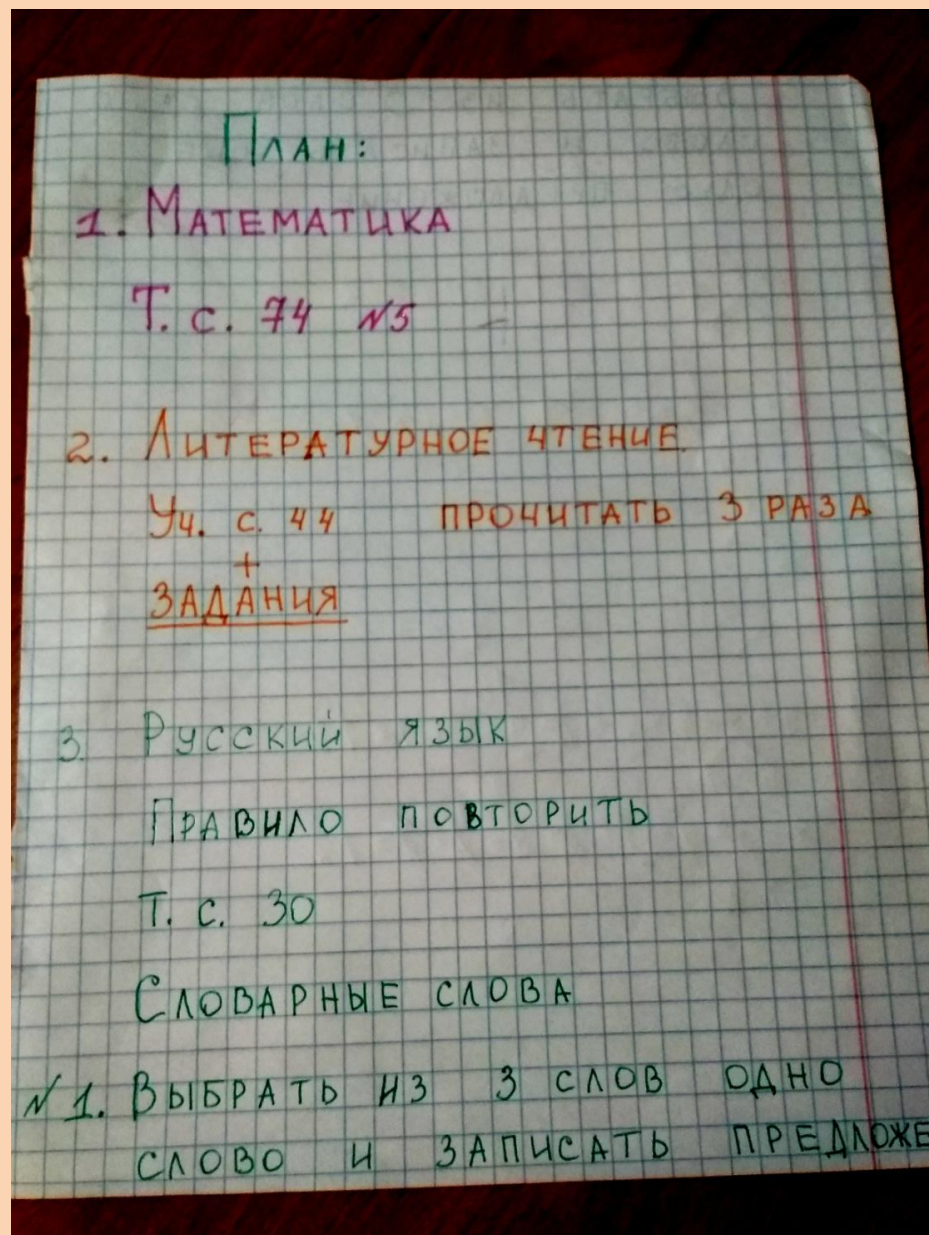 ПЛАН:
1. МАТЕМАТИКА
Т. с. 74 №5
2. ЛИТЕРАТУРНОЕ ЧТЕНИЕ.
Уч. с. 44 ПРОЧИТАТЬ 3 РАЗА
+
ЗАДАНИЯ
3. РУССКИЙ ЯЗЫК
ПРАВИЛО ПОВТОРИТЬ
Т. с. 30
СЛОВАРНЫЕ СЛОВА
№1. ВЫБРАТЬ ИЗ 3 СЛОВ ОДНО
СЛОВО И ЗАПИСАТЬ ПРЕДЛОЖЕ